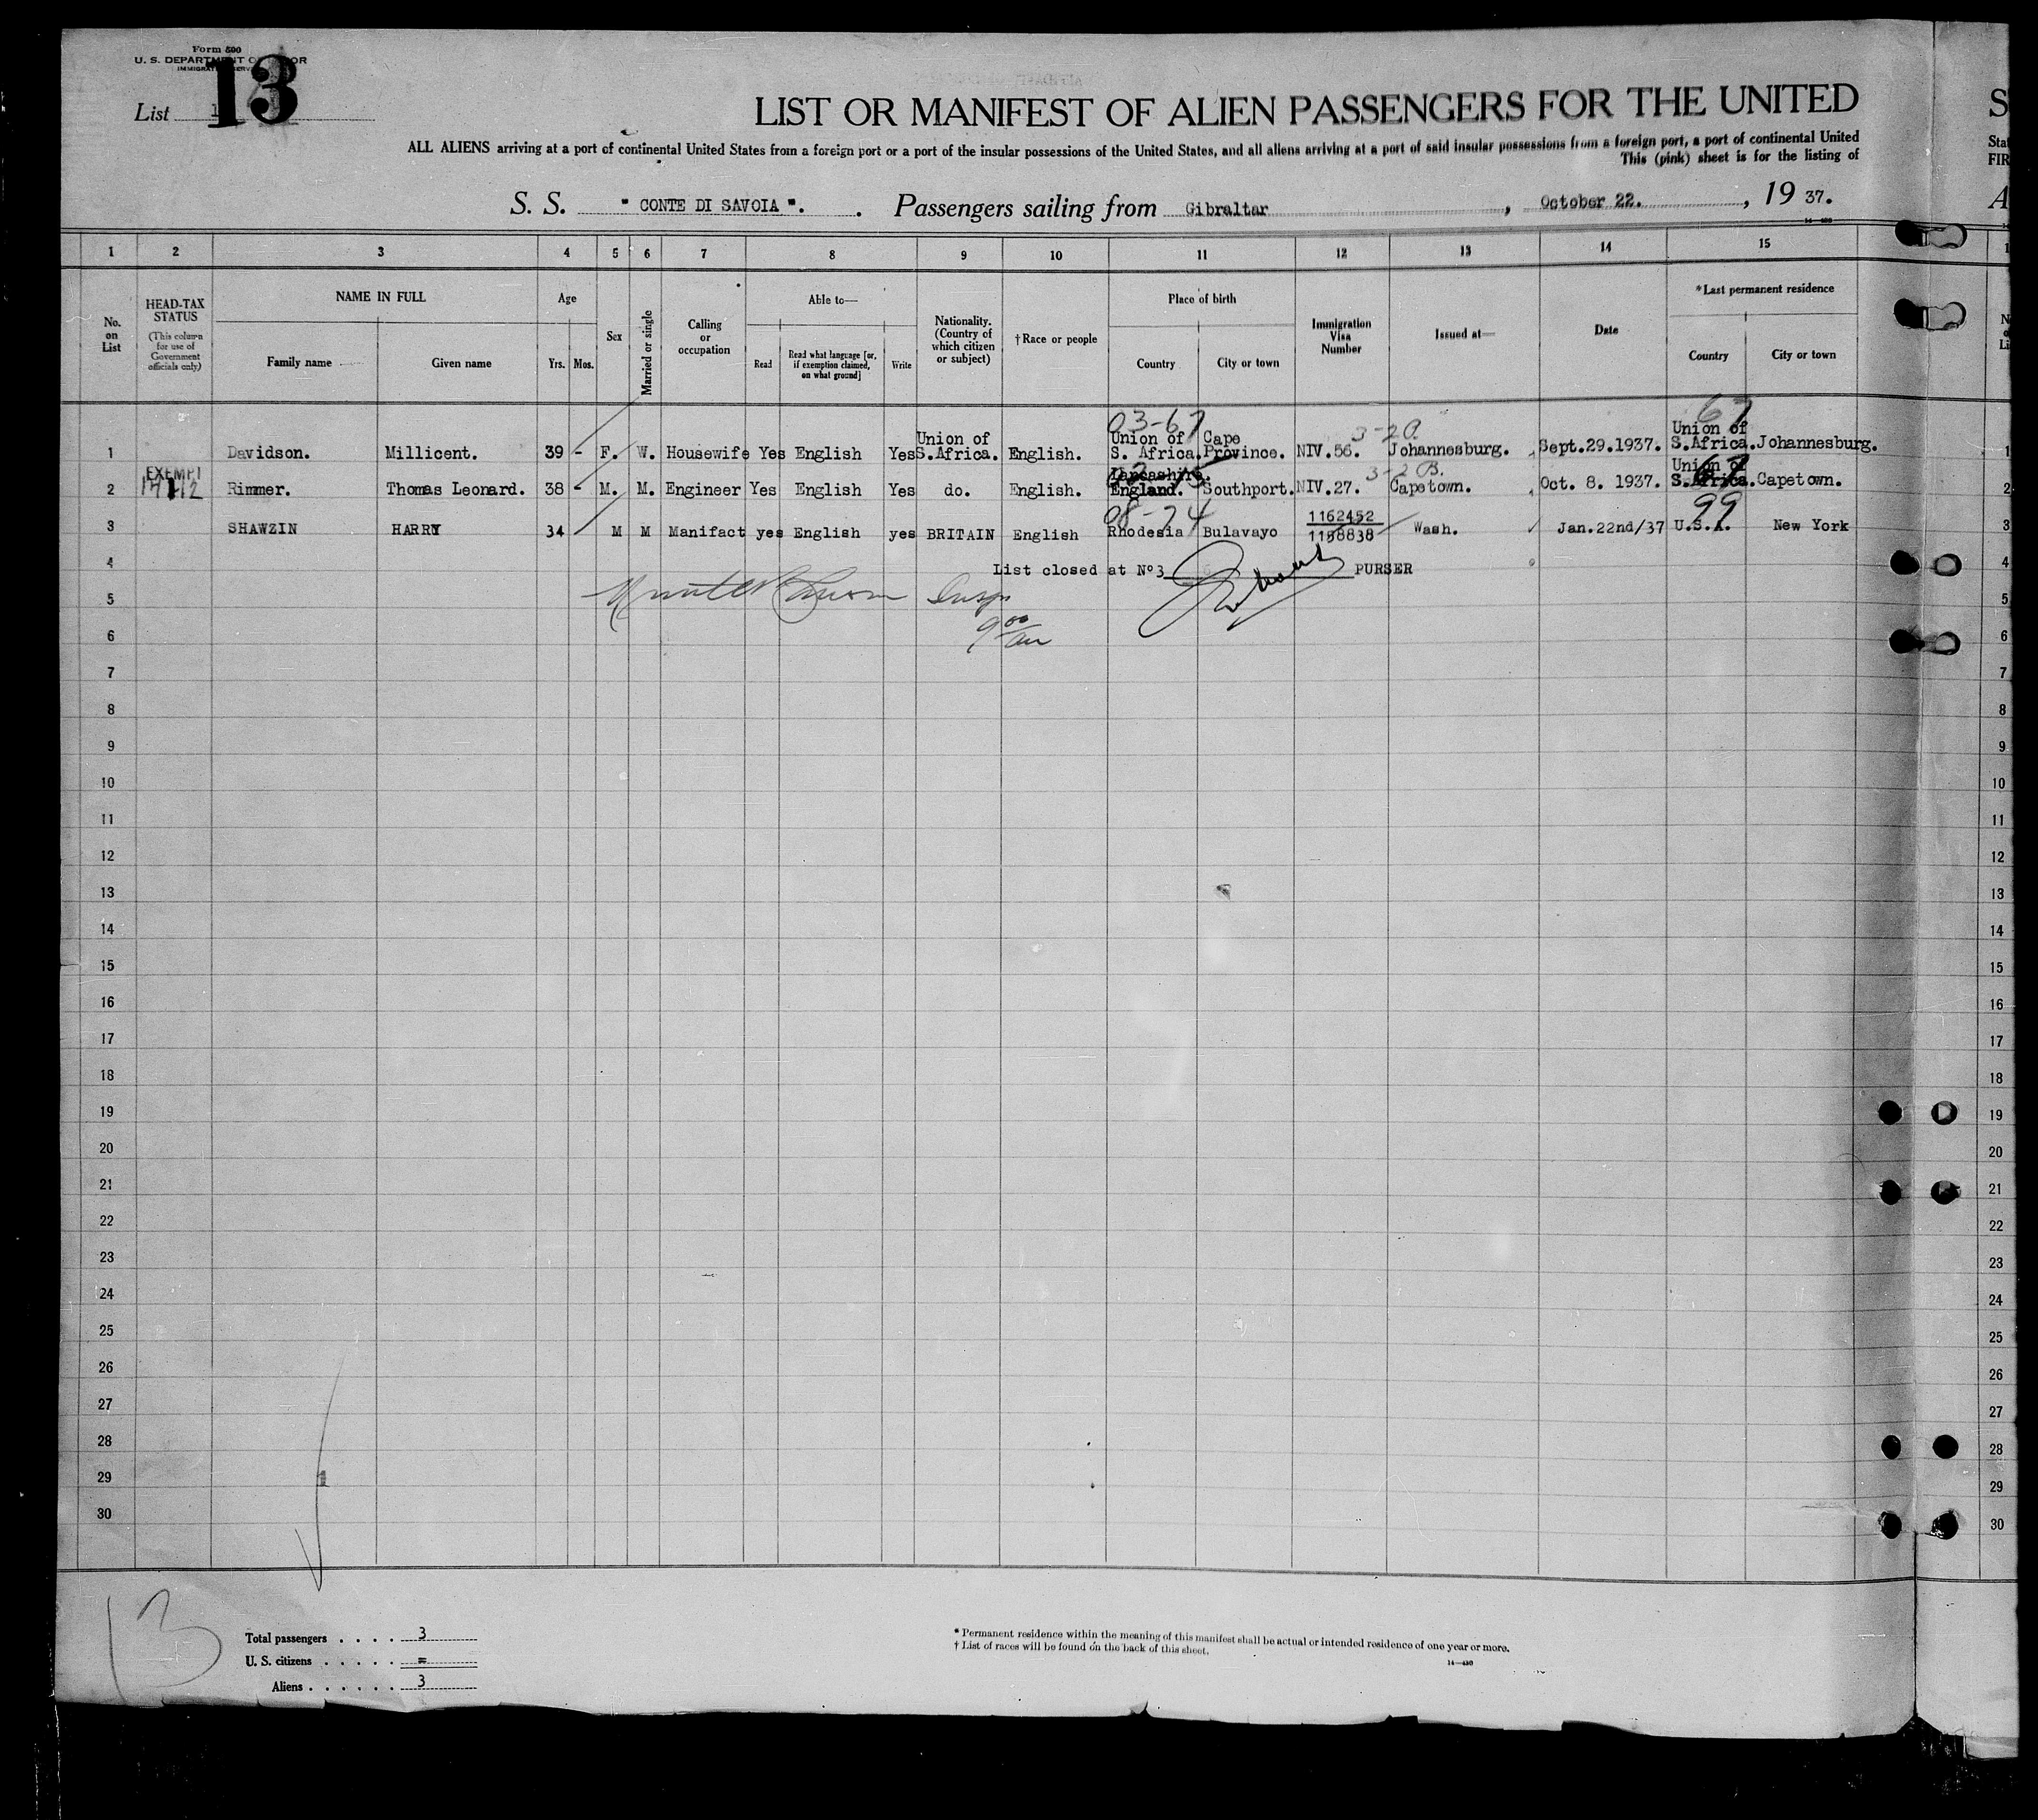 Form 500
U. S. DEPARTMENT OF LABOR
IMMIGRATION SERVICE
List 13
LIST OR MANIFEST OF ALIEN PASSENGERS FOR THE UNITED
ALL ALIENS arriving at a port of continental United States from a foreign port or a port of the insular possessions of the United States, and all aliens arriving at a port of said insular possessions from a foreign port, a port of continental United
This (pink) sheet is for the listing of
S
Stat
FIR
S. S. " CONTE DI SAVOIA ". Passengers sailing from Gibraltar, October 22., 19 37.
A
1 2 3 4 5 6 7 8 9 10 11 12 13 14 15 1
No. on List
HEAD-TAX STATUS
(This column for use of Government officials only)
NAME IN FULL
Family name Given name
Age
Yrs. Mos.
Sex
Married or single
Calling or occupation
Able to—
Read
Read what language [or, if exemption claimed, on what ground]
Write
Nationality. (Country of which citizen or subject)
† Race or people
Place of birth
Country City or town
Immigration Visa Number
Issued at—
Date
* Last permanent residence
Country City or town
03-67 67
3-2
1 Davidson. Millicent. 39 - F. W. Housewife Yes English Yes Union of S.Africa. English. Union of S. Africa. Cape Province. NIV.56. Johannesburg. Sept.29.1937. Union of S.Africa. Johannesburg. 1
EXEMPT
3-2 B. 67
2 Rimmer. Thomas Leonard. 38 - M. M. Engineer Yes English Yes do. English. Lancashire. England. Southport. NIV.27. Capetown. Oct. 8. 1937. Union of S.Africa. Capetown. 2
08-74 99
3 SHAWZIN HARRY 34 M M Manifact yes English yes BRITAIN English Rhodesia Bulavayo 1162452 1198838 Wash. Jan.22nd/37 U.S.A. New York 3
4 List closed at Nº3 PURSER 4
5 Insp 5
6 9 00 am 6
7 7
8 8
9 9
10 10
11 11
12 12
13 13
14 14
15 15
16 16
17 17
18 18
19 19
20 20
21 21
22 22
23 23
24 24
25 25
26 26
27 27
28 28
29 29
30 30
13
Total passengers . . . . 3
U. S. citizens . . . . . =
Aliens . . . . . . 3
* Permanent residence within the meaning of this manifest shall be actual or intended residence of one year or more.
† List of races will be found on the back of this sheet.
14—430